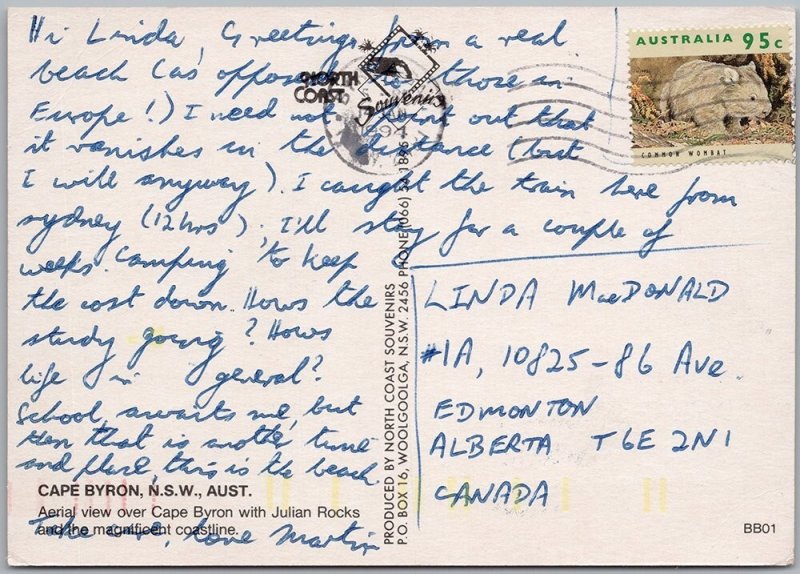 Hi Linda, Greetings from a real
beach (as opposed to those in
Europe!) I need not point out that
it vanishes in the distance (but
I will anyway). I caught the train here from
sydney (12hrs), I'll stay for a couple of
weeks. Camping to keep
the cost down. Hows the
study going? Hows
life in general?
School awaits me, but
then that is another time
and place, this is the beach.
CAPE BYRON, N.S.W., AUST.
Aerial view over Cape Byron with Julian Rocks
and the magnificent coastline.
Take care, love Martin
NORTH
COAST
Souvenirs
PRODUCED BY NORTH COAST SOUVENIRS
P.O. BOX 16, WOOLGOOLGA, N.S.W. 2456 PHONE (066) 54 1895
AUSTRALIA 95c
COMMON WOMBAT
LINDA MacDONALD
#1A, 10825-86 Ave.
EDMONTON
ALBERTA T6E 2N1
CANADA
BB01